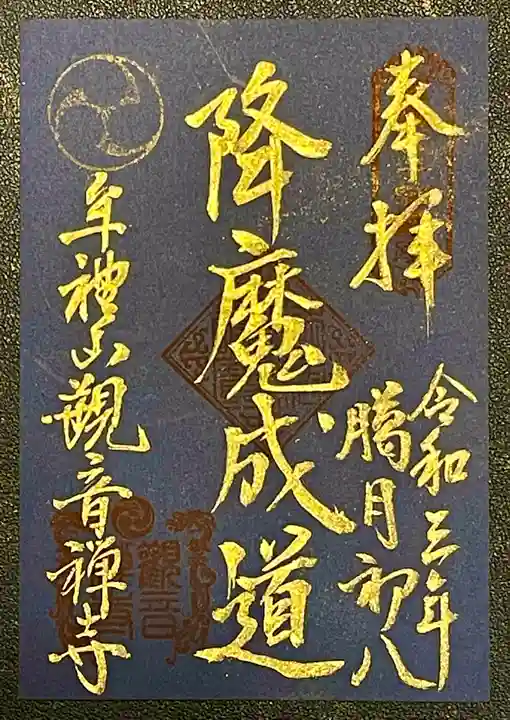 奉拝
令和三年
臈月初八
降魔成道
牟禮山觀音禅寺
觀音